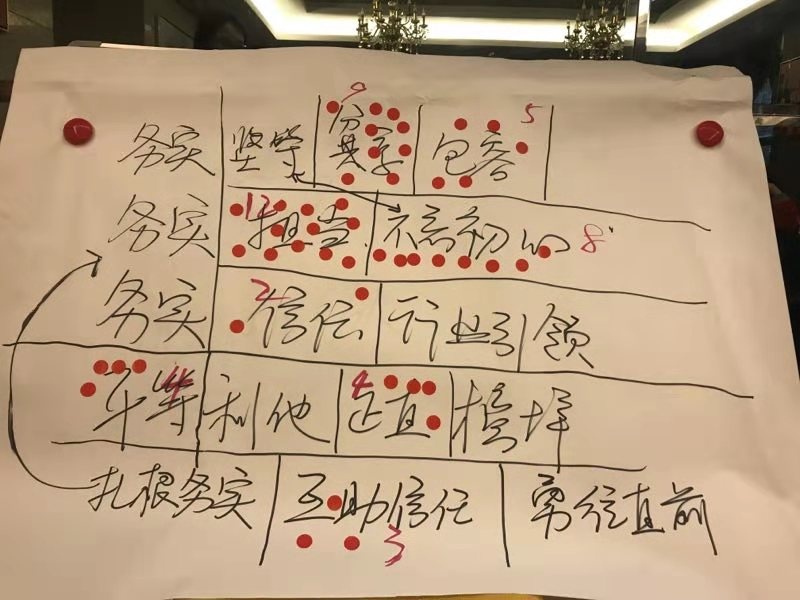 9 5
务实 坚守 分享 包容
务实 12 担当 不忘初心 8
务实 2 信任 行业引领
平等 4 利他 4 正直 榜样
扎根务实 互助信任 勇往直前
3